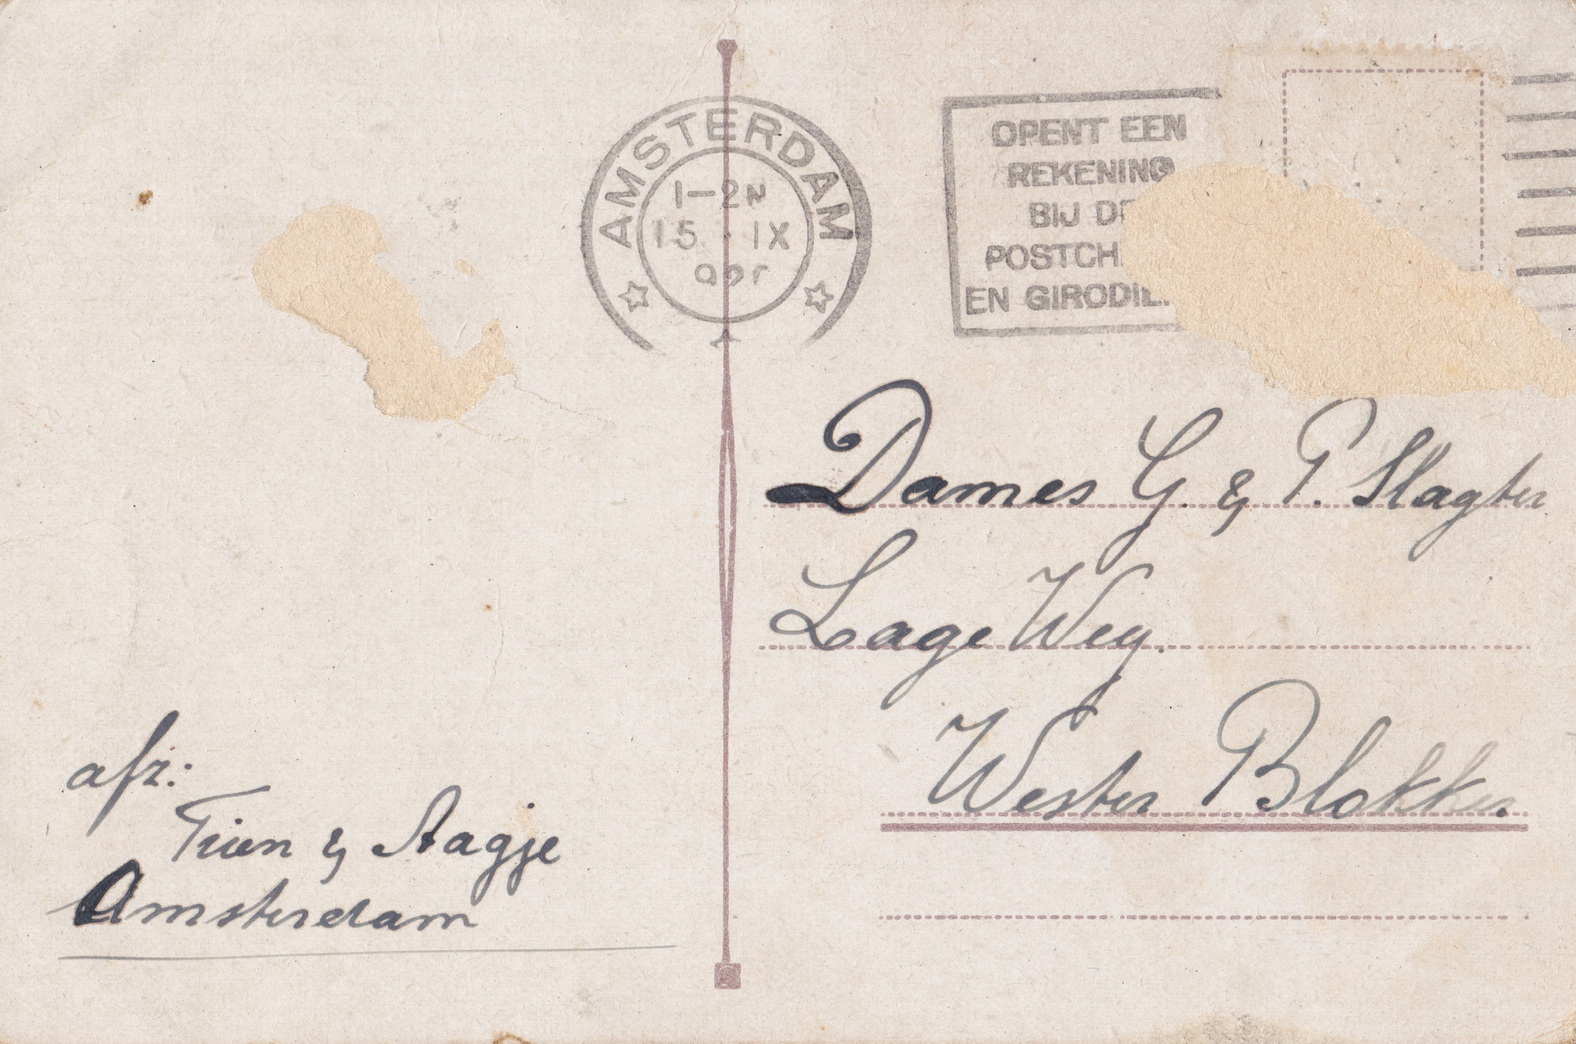 AMSTERDAM
1-2N
15. IX
OPENT EEN
REKENING
BIJ
POSTCH
EN GIRODIE
Dames G. & P. Slagter
Lage Weg.
Wester Blokker.
afz:
Trien & Aagje
Amsterdam